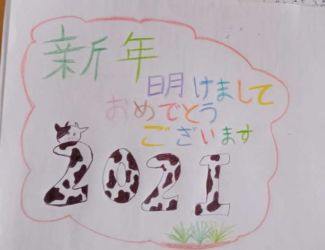 新年
明けまして
おめでとう
ございます
2021